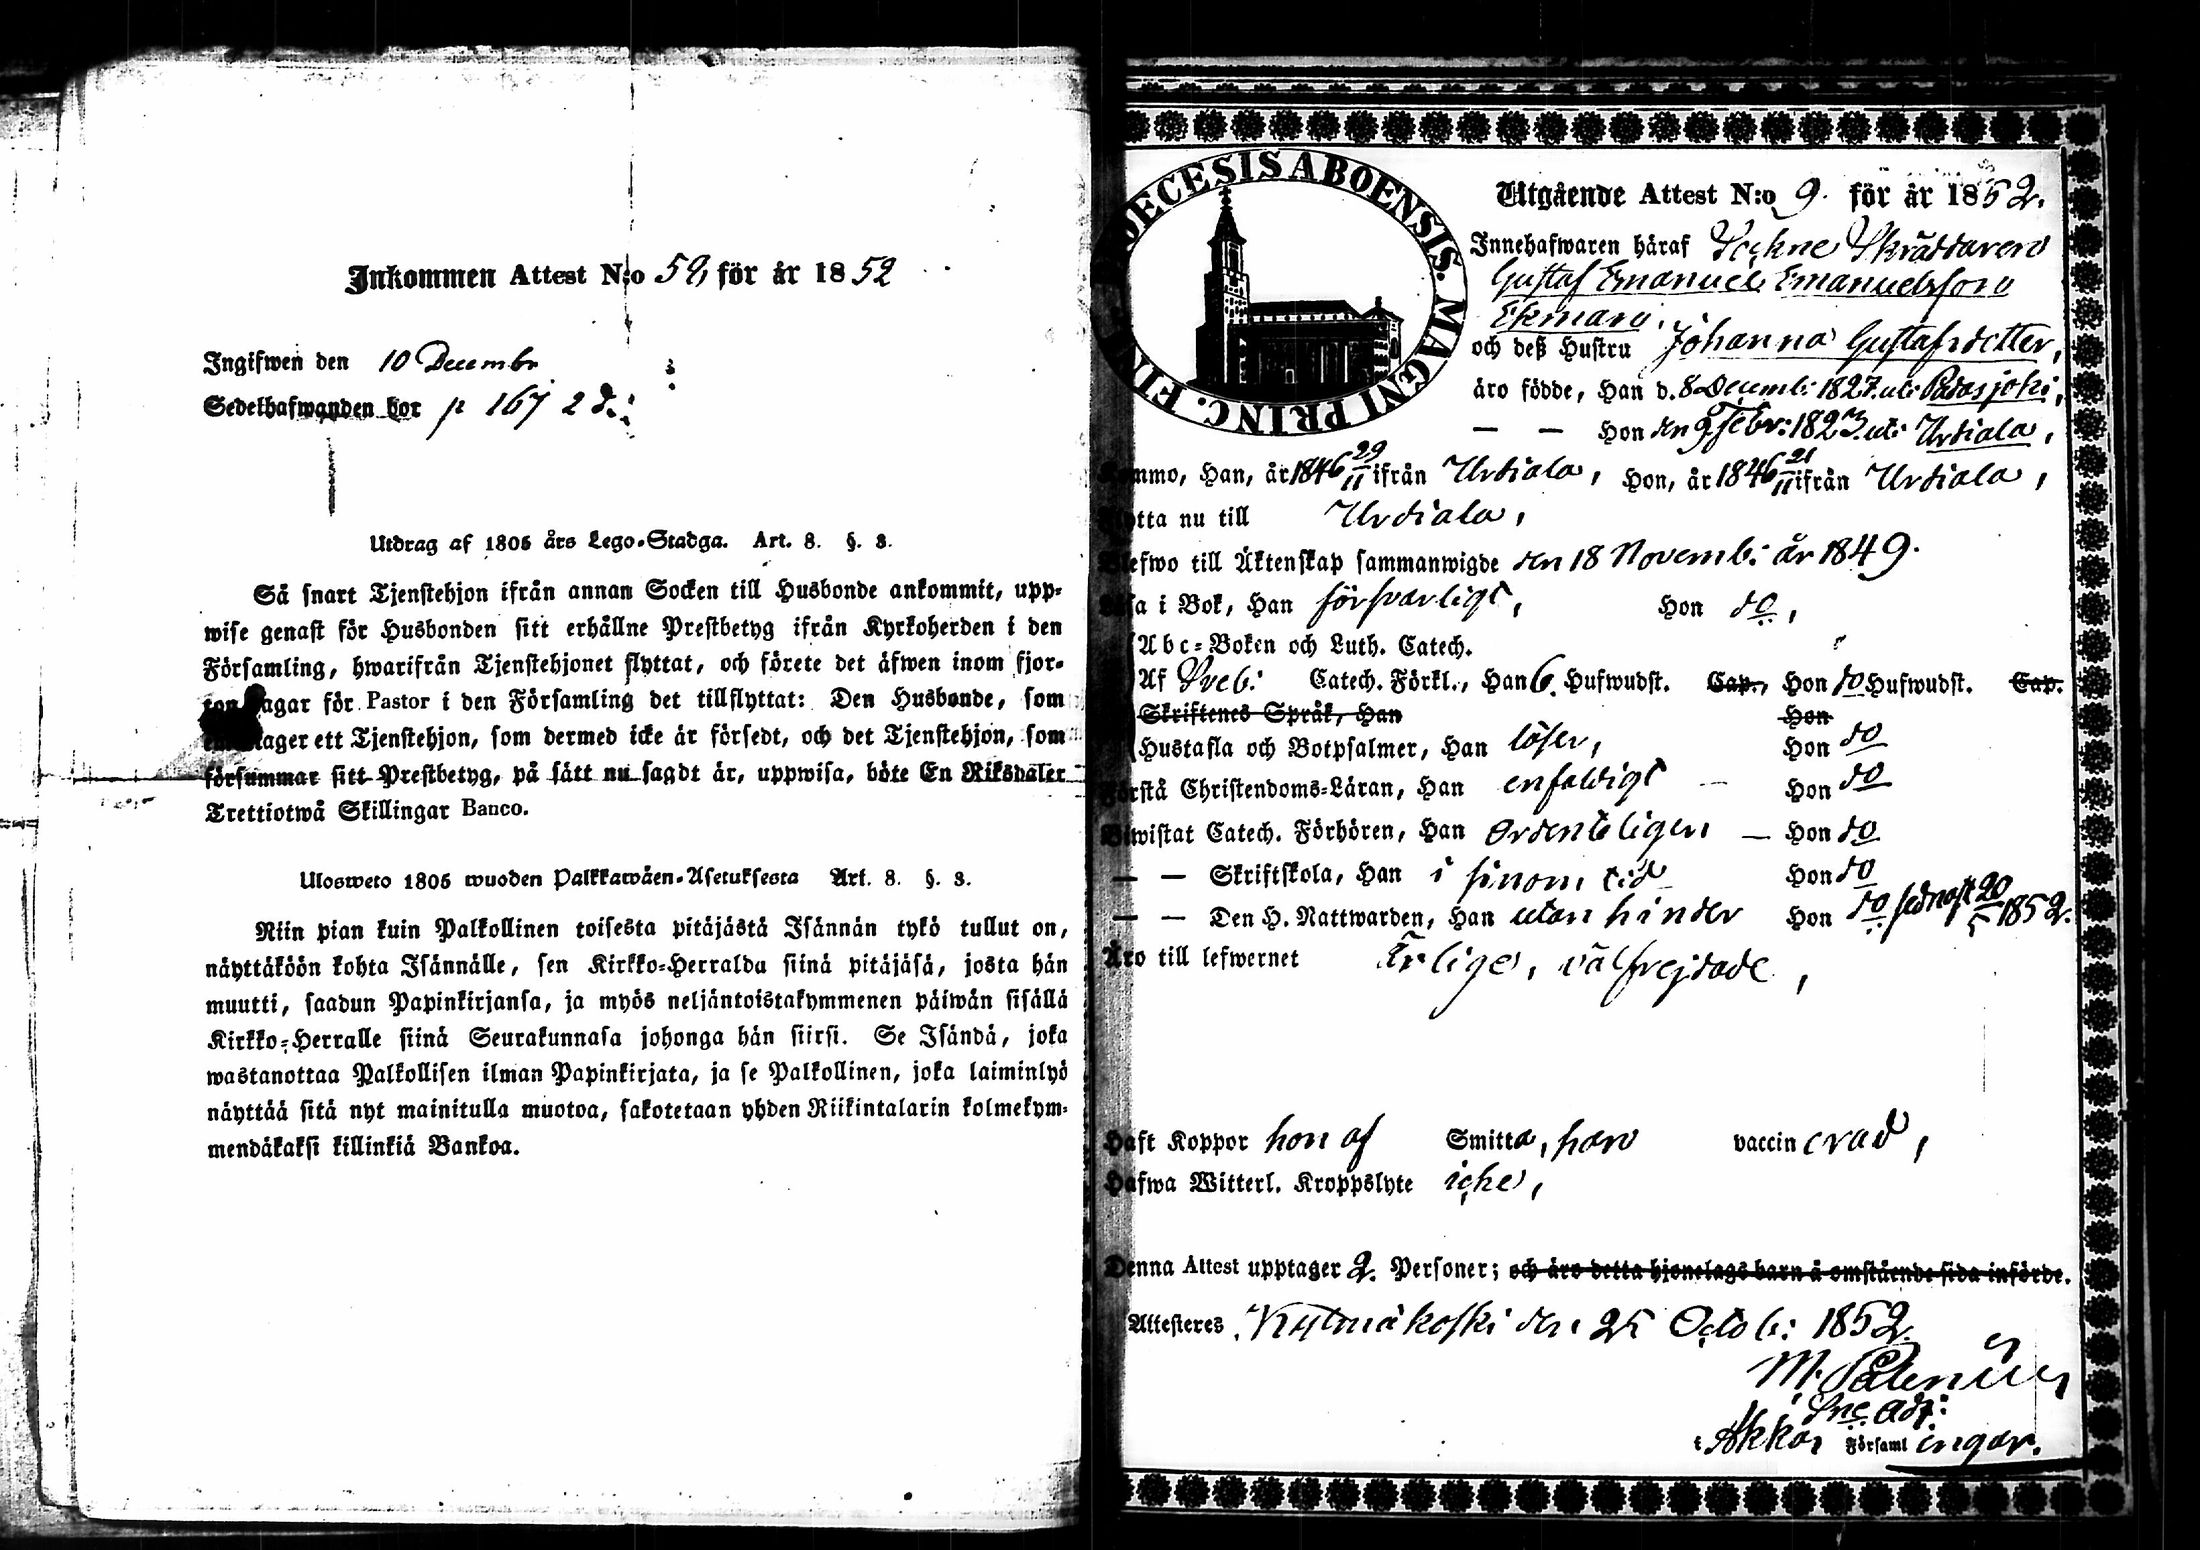 Inkommen Attest N:o 52, för år 1852
Ingifwen den 10 Decembr
Sedelhafwanden bor p 167 2 d.
Utdrag af 1805 års Lego-Stadga. Art. 8. §. 3.
Så snart Tjenstehjon ifrån annan Socken till Husbonde ankommit, upp-
wise genast för Husbonden sitt erhållne Prestbetyg ifrån Kyrkoherden i den
Församling, hwarifrån Tjenstehjonet flyttat, och förete det äfwen inom fjor-
ton dagar för Pastor i den Församling det tillflyttat: Den Husbonde, som
ett Tjenstehjon, som dermed icke är försedt, och det Tjenstehjon, som
försummar sitt Prestbetyg, på sätt nu sagdt är, uppwisa, böte En Riksdaler
Trettiotwå Skillingar Banco.
Ulosweto 1805 wuoden Palkkawäen-Asetuksesta Art. 8. §. 3.
Niin pian kuin Palkollinen toisesta pitäjästä Isännän tykö tullut on,
näyttäköön kohta Isännälle, sen Kirkko-Herralda siinä pitäjäsä, josta hän
muutti, saadun Papinkirjansa, ja myös neljäntoistakymmenen päiwän sisällä
Kirkko-Herralle siinä Seurakunnasa johonga hän siirsi. Se Isändä, joka
wastanottaa Palkollisen ilman Papinkirjata, ja se Palkollinen, joka laiminlyö
näyttää sitä nyt mainitulla muotoa, sakotetaan yhden Riikintalarin kolmekym-
mendäkaksi killinkiä Bankoa.
DIOECESIS ABOENSIS. MAGNI PRINC. FINL
Utgående Attest N:o 9. för år 1852.
Innehafwaren häraf Sockne Skräddaren
Gustaf Emanuel Emanuelsson
Ekman,
och deß Hustru Johanna Gustafsdotter,
äro födde, Han d. 8 Decemb: 1827. uti Padasjoki,
— — Hon den 9 Febr: 1823. uti Urdiala,
Kommo, Han, år 1846 29/11 ifrån Urdiala, Hon, år 1846 21/11 ifrån Urdiala,
Flytta nu till Urdiala,
Blefwo till Äktenskap sammanwigde den 18 Novemb: år 1849.
Läsa i Bok, Han försvarligt, Hon do,
Abc-Boken och Luth. Catech.
Af Sveb: Catech. Förkl., Han 6. Hufwudst. Cap., Hon do Hufwudst. Cap.
Skriftenes Språk, Han Hon
Hustafla och Botpsalmer, Han läser, Hon do
Förstå Christendoms-Läran, Han enfaldigt — Hon do
Biwistat Catech. Förhören, Han Ordenteligen — Hon do
— — Skriftskola, Han i sinom tid Hon do
— — Den H. Nattwarden, Han utan hinder Hon do sednast 20/5 1852.
Äro till lefwernet Ärlige, välfrejdade,
Haft Koppor hon af Smitta, han vaccinerad,
Hafwa Witterl. Kroppslyte icke,
Denna Attest upptager 2. Personer; och äro detta hjonelags barn å omstående sida införde.
Attesteres, Kylmäkoski den 25 Octob: 1852.
Sne Adj:
i Akkas Församlingar.